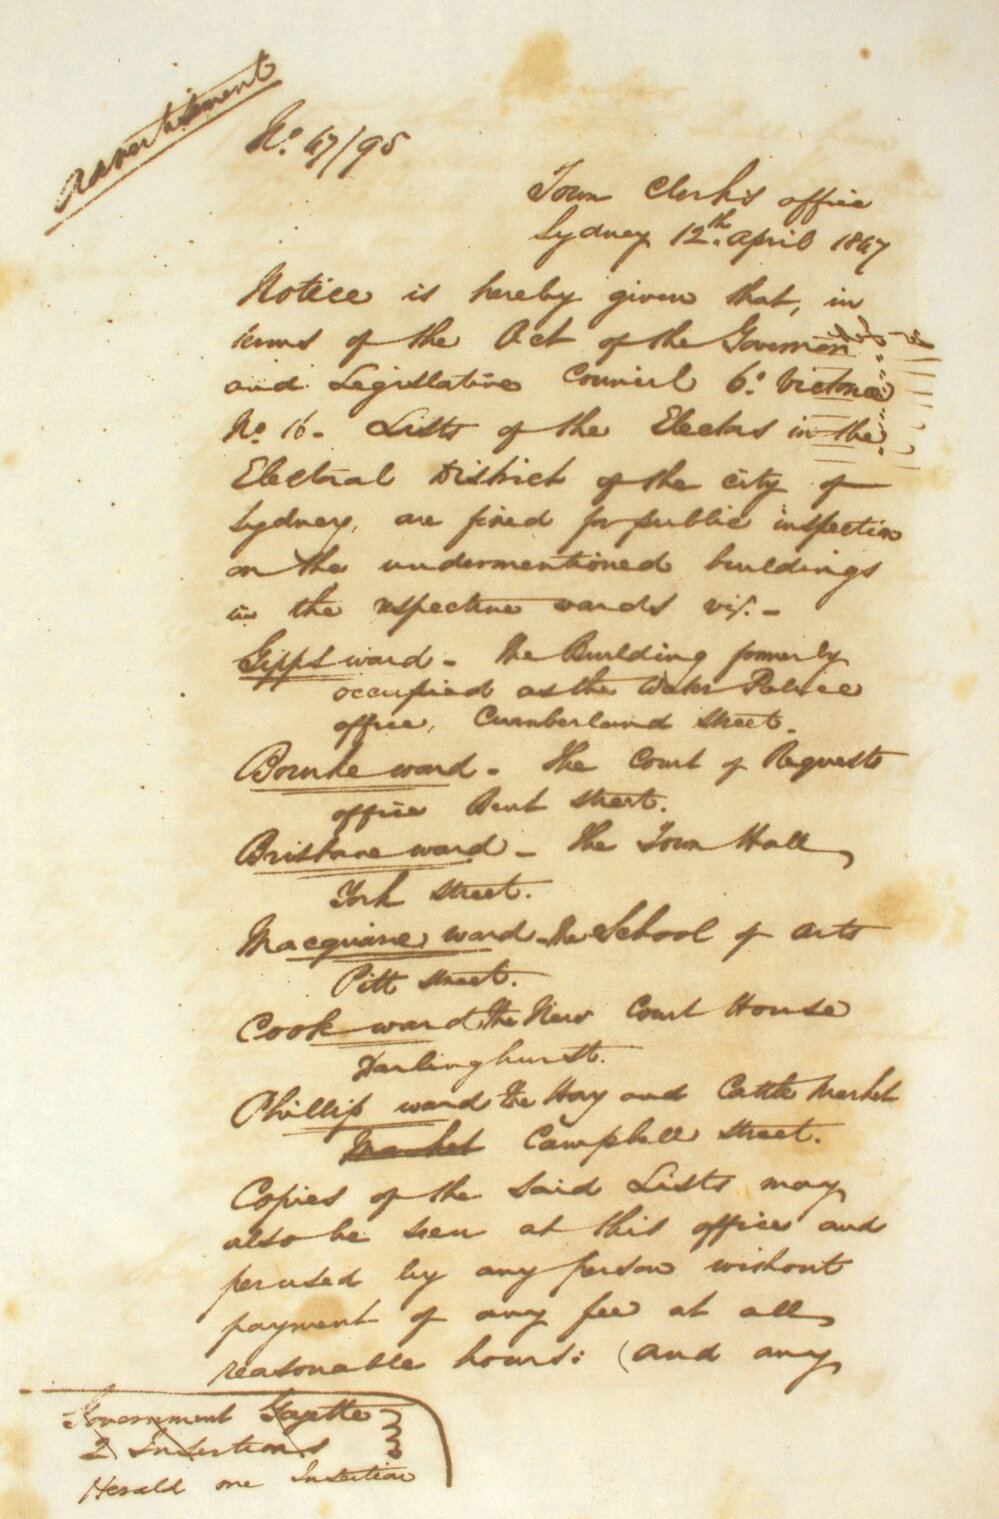 Advertisement
No. 47/95
Town Clerk's office
Sydney 12th. April 1847
Notice is hereby given that, in
terms of the Act of the Governor
and Legislative Council 6o. Victoria
No 16. Lists of the Electors in the
Electoral District of the City of
Sydney, are fixed for public inspection
on the undermentioned buildings
in the respective wards viz. -
Gipps ward - The Building formerly
occupied as the Water Police
office, Cumberland Street.
Bourke ward - The Court of Requests
office Bent Street.
Brisbane ward - The Town Hall
York Street.
Macquarie ward - The School of Arts
Pitt Street.
Cook ward The New Court House
Darlinghurst.
Phillip ward The Hay and Cattle Market
Market Campbell Street.
Copies of the said Lists may
also be seen at this office and
perused by any person without
payment of any fee at all
reasonable hours: (and any
Government Gazette
2 Insertions
Herald one Insertion